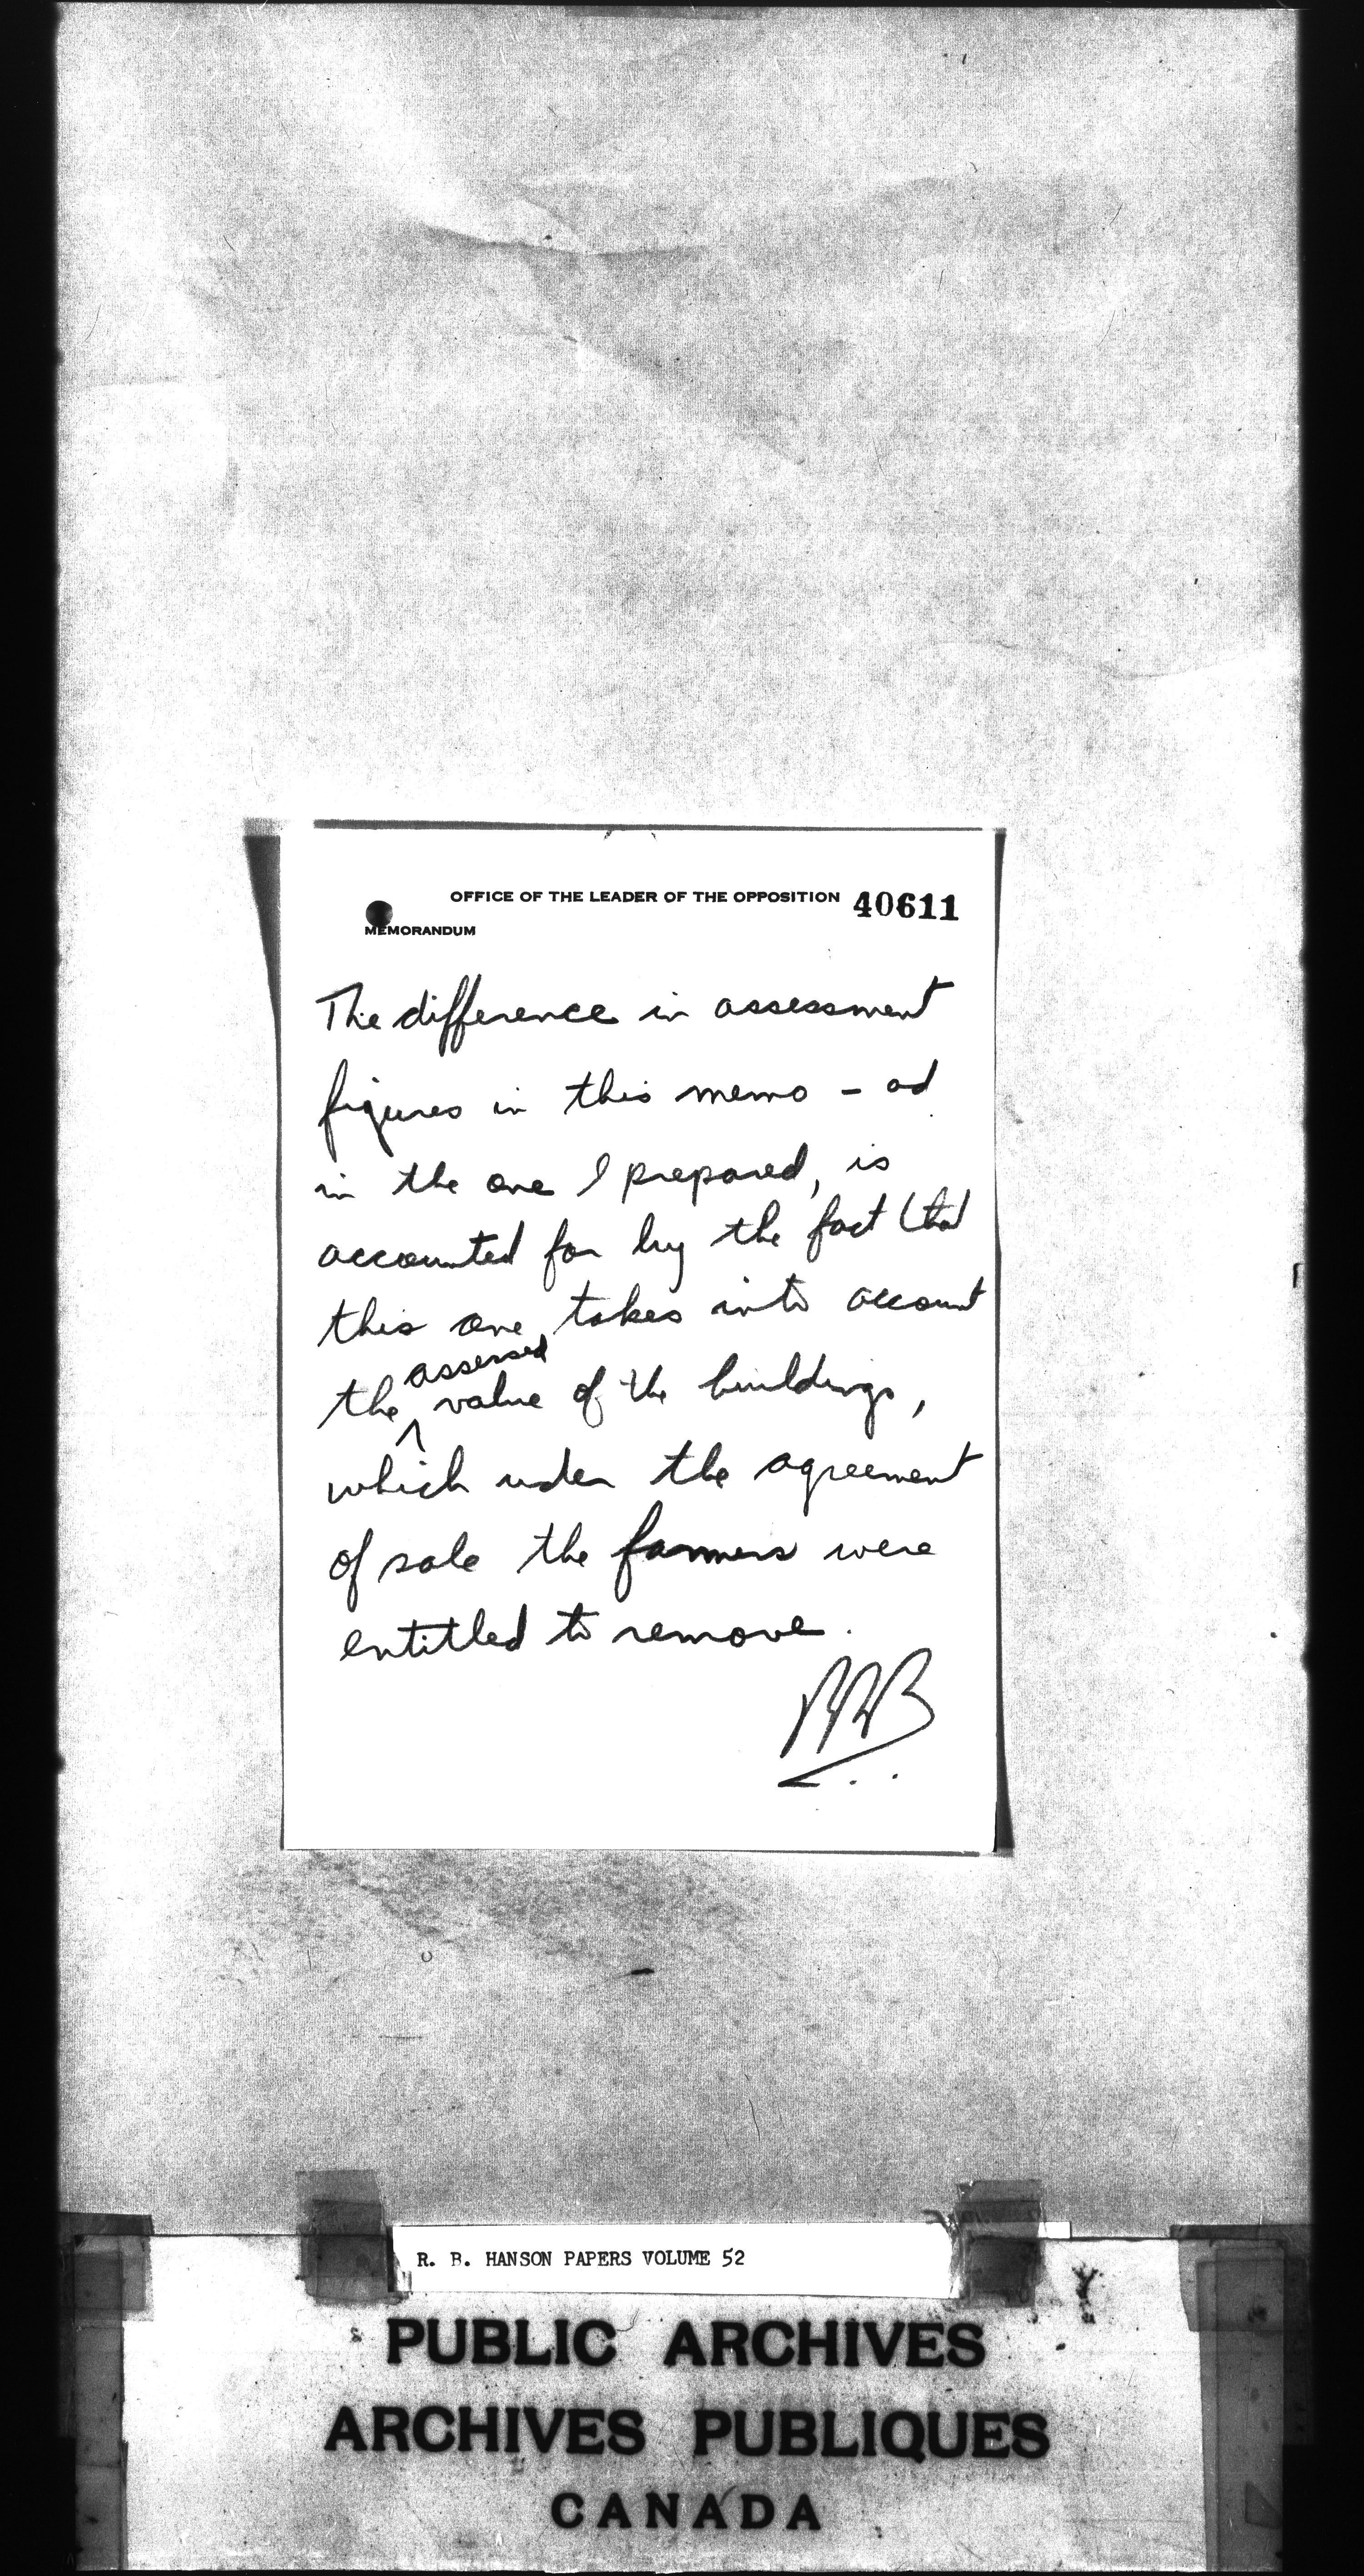 OFFICE OF THE LEADER OF THE OPPOSITION 40611
MEMORANDUM
The difference in assessment
figures in this memo - ad
in the one I prepared, is
accounted for by the fact that
this one, takes into account
the assessed value of the buildings,
which under the agreement
of sale the farmers were
entitled to remove.
R. B. HANSON PAPERS VOLUME 52
PUBLIC ARCHIVES
ARCHIVES PUBLIQUES
CANADA